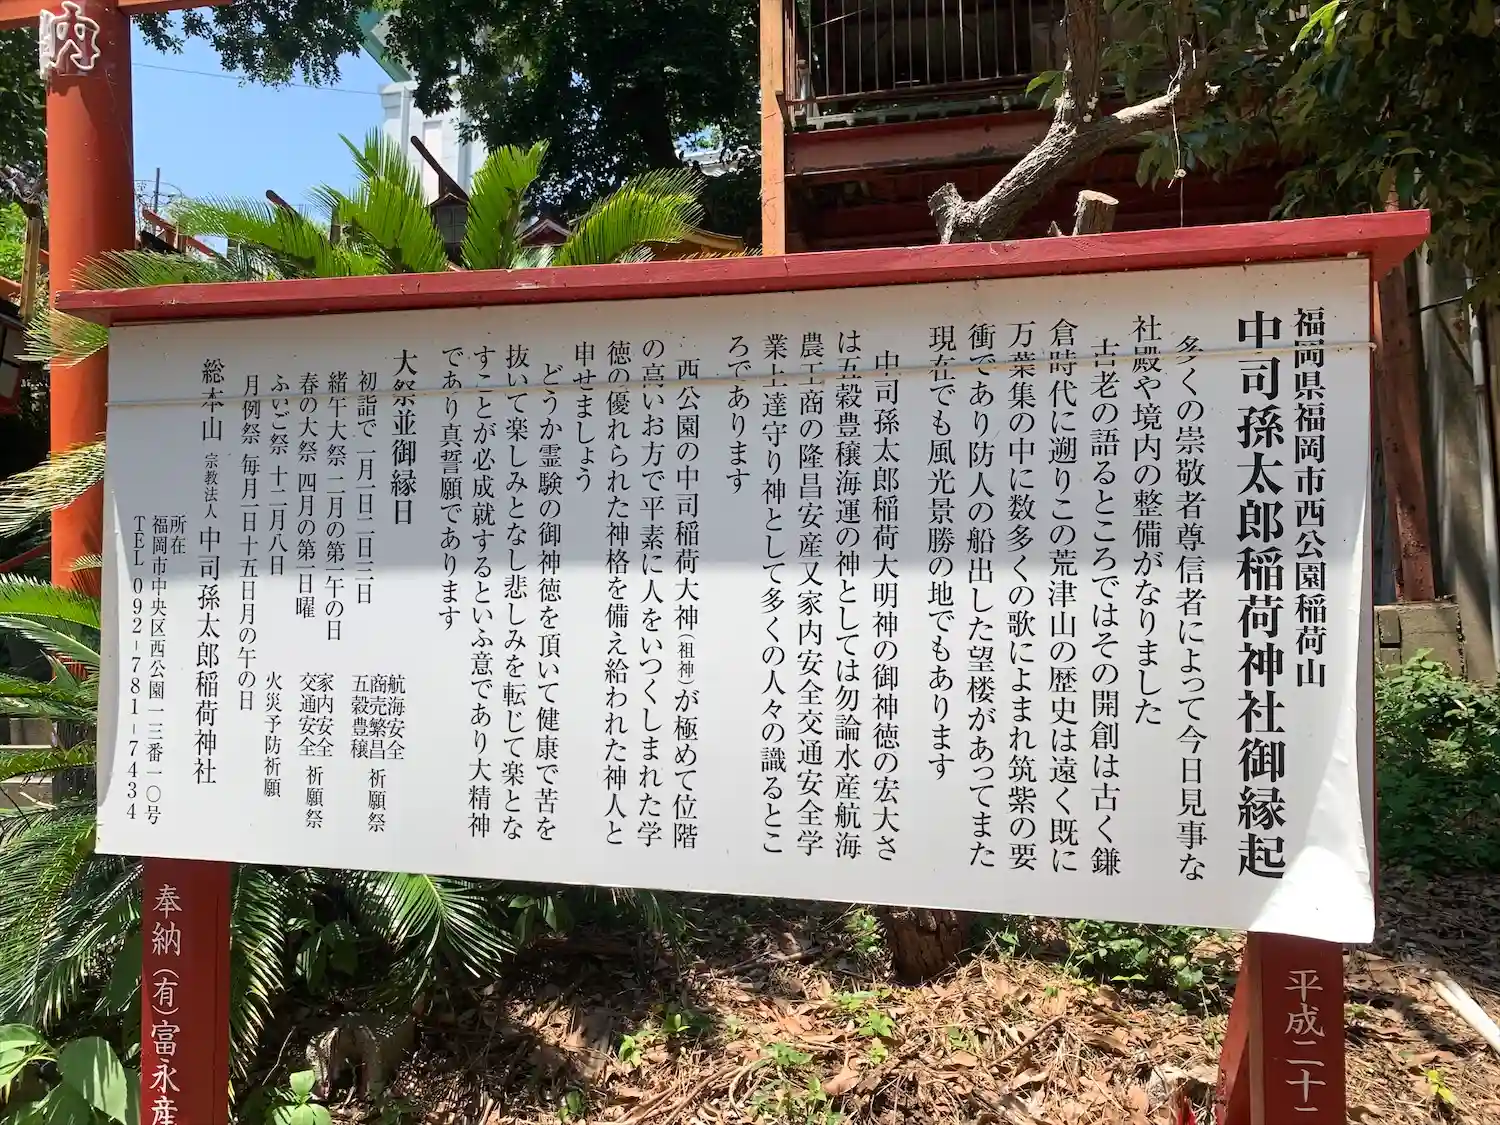 福岡県福岡市西公園稲荷山
中司孫太郎稲荷神社御縁起
多くの崇敬者尊信者によって今日見事な
社殿や境内の整備がなりました
古老の語るところではその開創は古く鎌
倉時代に遡りこの荒津山の歴史は遠く既に
万葉集の中に数多くの歌によまれ筑紫の要
衝であり防人の船出した望楼があってまた
現在でも風光景勝の地でもあります
中司孫太郎稲荷大明神の御神徳の宏大さ
は五穀豊穣海運の神としては勿論水産航海
農工商の隆昌安産又家内安全交通安全学
業上達守り神として多くの人々の識るとこ
ろであります
西公園の中司稲荷大神(祖神)が極めて位階
の高いお方で平素に人をいつくしまれた学
徳の優れられた神格を備え給われた神人と
申せましょう
どうか霊験の御神徳を頂いて健康で苦を
抜いて楽しみとなし悲しみを転じて楽とな
すことが必成就するといふ意であり大精神
であり真誓願であります
大祭並御縁日
初詣で 一月一日二日三日 航海安全 商売繁昌 五穀豊穣 祈願祭
緒午大祭 二月の第一午の日
春の大祭 四月の第一日曜 家内安全 交通安全 祈願祭
ふいご祭 十二月八日 火災予防祈願
月例祭 毎月一日十五日月の午の日
総本山 宗教法人 中司孫太郎稲荷神社
所在
福岡市中央区西公園一三番一〇号
TEL 092-781-7434
納
平成二十二
奉納(有)富永産